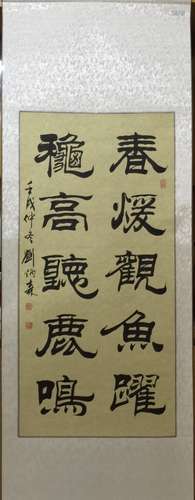 春煖觀魚躍
穐高聽鹿鳴
壬戌仲冬劉炳森